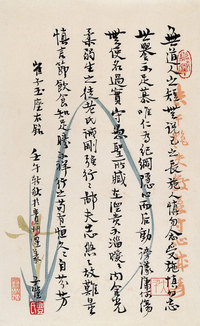 無道人之短無說己之長施人慎勿念受施慎勿忘
世譽不足慕唯仁為紀綱隱心而後動謗議庸何傷
無使名過實守愚聖所臧在涅貴不淄曖曖內含光
柔弱生之徒老氏誡剛強行行鄙夫志悠悠故難量
慎言節飲食知足勝不祥行之苟有恒久久自芬芳
崔子玉座右銘